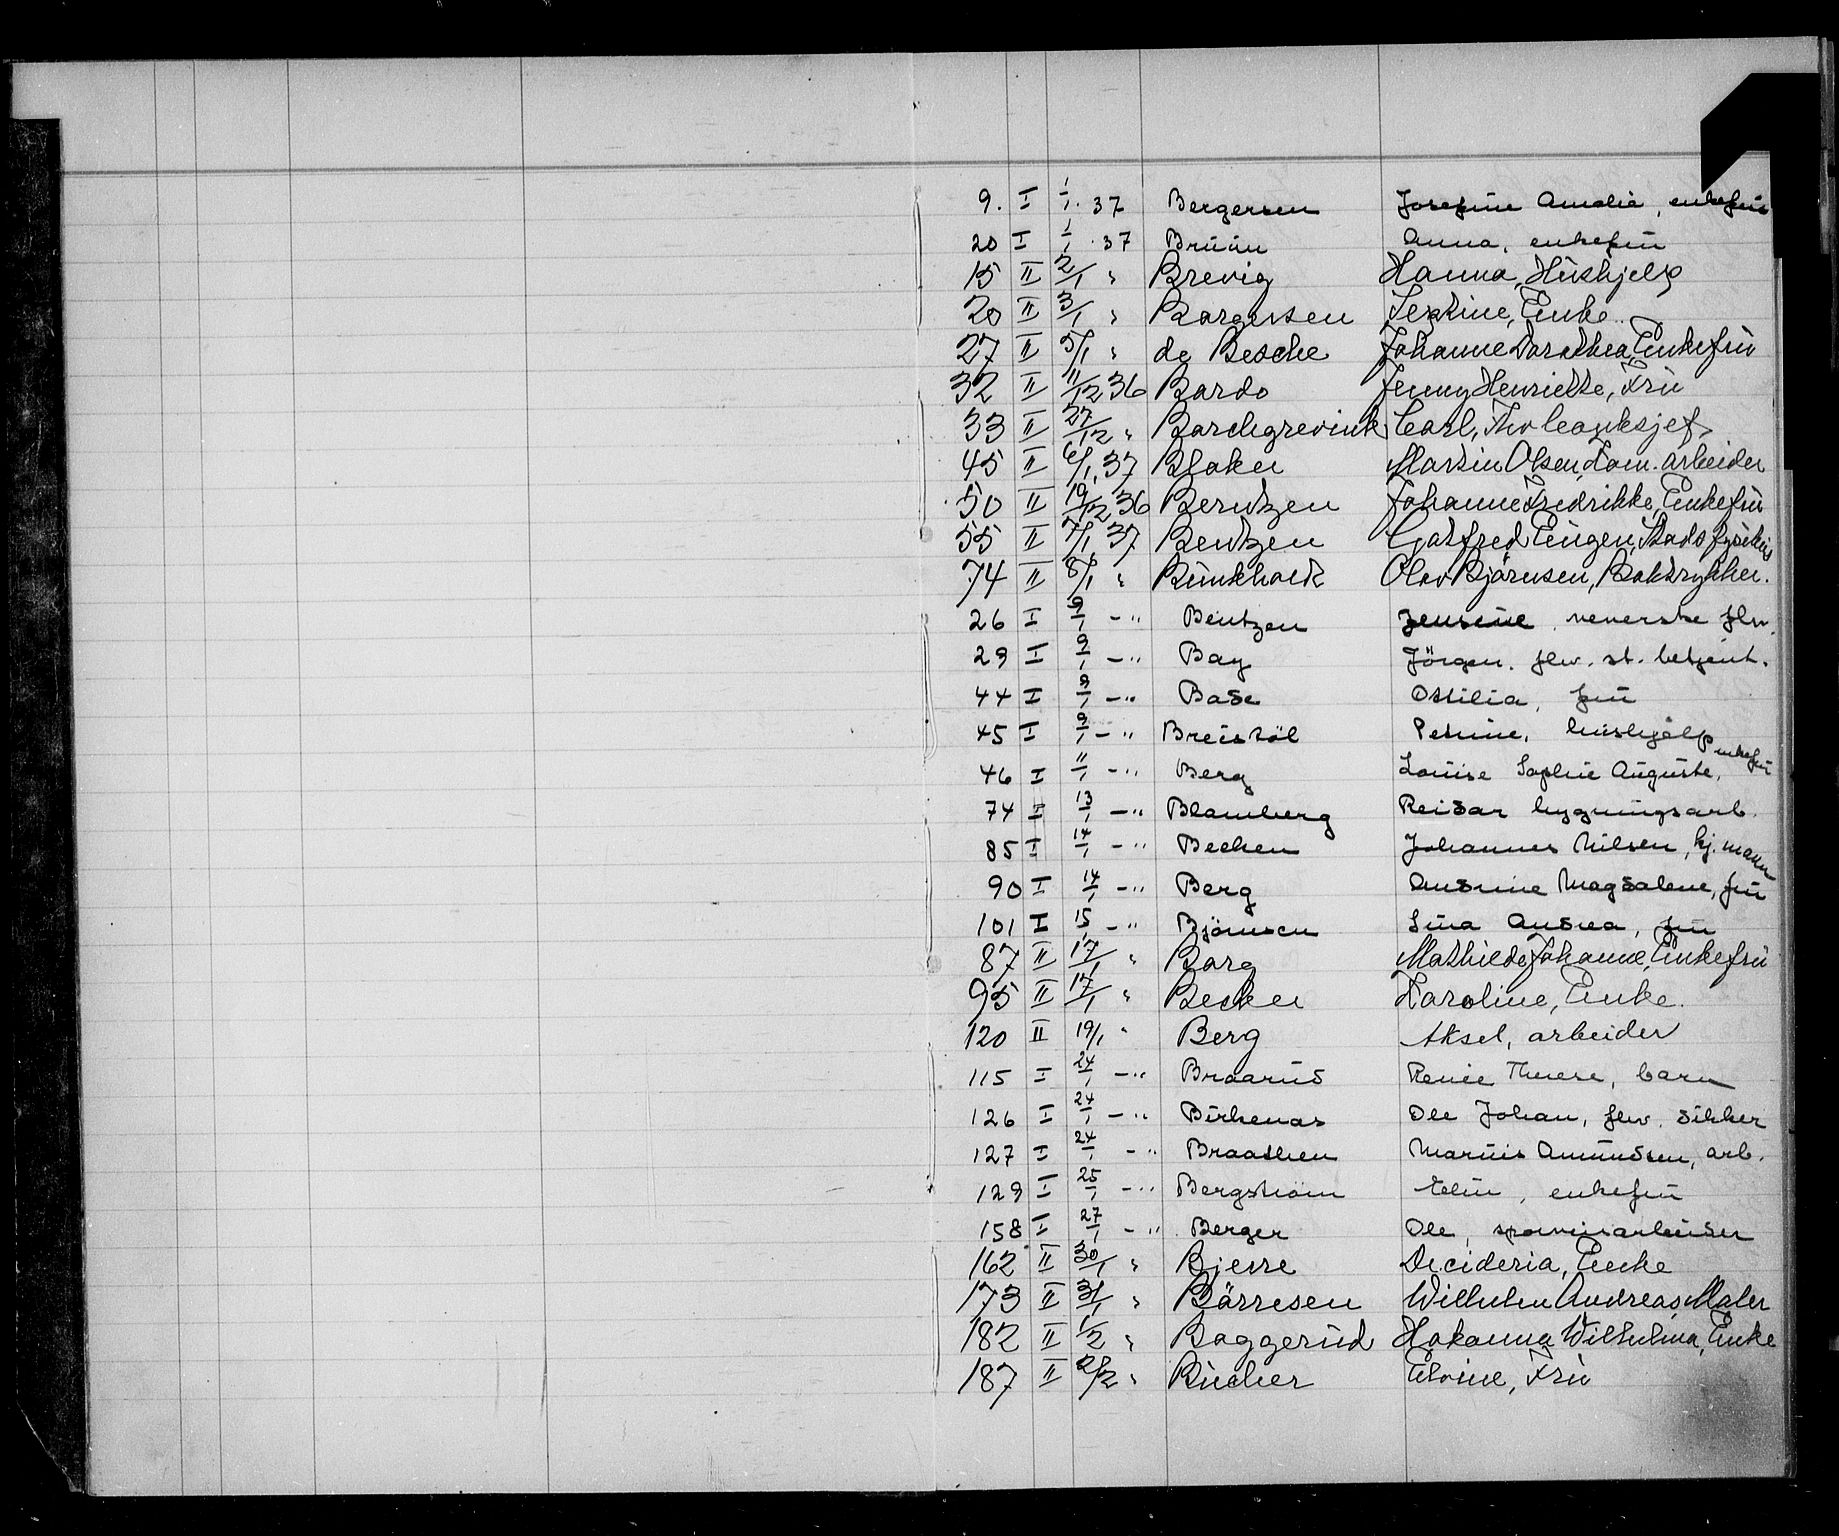 9. I 1/1. 37 Bergersen Josefine Amalie, enkefrú
20 I 1/1 37 Brúún Anna, enkefrú
15 II 2/1 " Brevig Hanna, Húshjelp
20 II 3/1 " Borgersen Sextine, Enke
27 II 5/1 " de Besche Johanne Dorothea, Enkefrú
32 II 11/12 36 Bardo Jenny Henriette, Frú
33 II 27/12 " Borchgrevink Carl, Thv banksjef
45 II 6/1 37 Blaker Martin Olsen, Kom. arbeider
50 II 19/12 36 Berntzen Johanne Fredrikke, Enkefrú
55 II 7/1 37 Bentzen Gotfred Eúgen, Stadsfysikús
74 II 8/1 " Búnkholdt Olav Bjørnsen, Boktrykker.
26 I 9/1 - " Bentzen Jensine, veverske flv.
29 I 9/1 - " Bay Jörgen. flv. st. betjent.
44 I 9/1 - " Båse Ottilia, frú
45 I 9/1 - " Breistöl Petrine, húshjelp
46 I 11/1 - " Berg Loúise Sophie Aúgúste, enkefrú
74 I 13/1 - " Blomberg Reidar bygningsarb.
85 I 14/1 - " Bechen Johannes Nilsen, kj. mann
90 I 14/1 - " Berg Andrine Magdalene, frú
101 I 15/1 - " Björnsen Lina Andrea, frú
87 II 17/1 " Borg Mathilde Johanne, Enkefrú
95 II 17/1 " Becker Karoline, Enke.
120 II 19/1 " Berg Aksel, arbeider
115 I 24/1 - " Braarúd Renée Therese, barn
126 I 24/1 - " Birkenas Ole Johan, flv. dikker
127 I 24/1 - " Braathen Mariús Amúndsen, arb.
129 I 25/1 - " Bergstrøm Elin, enkefrú
158 I 27/1 - " Berger Ole, sporveisarbeider
162 II 30/1 " Bjerre Decideria, Enke
173 II 31/1 " Börresen Wilhelm Andreas, Maler
182 II 1/2 " Baggerúd Hokanna Wilhelmina, Enke
187 II 2/2 " Búcher Elvine, Frú